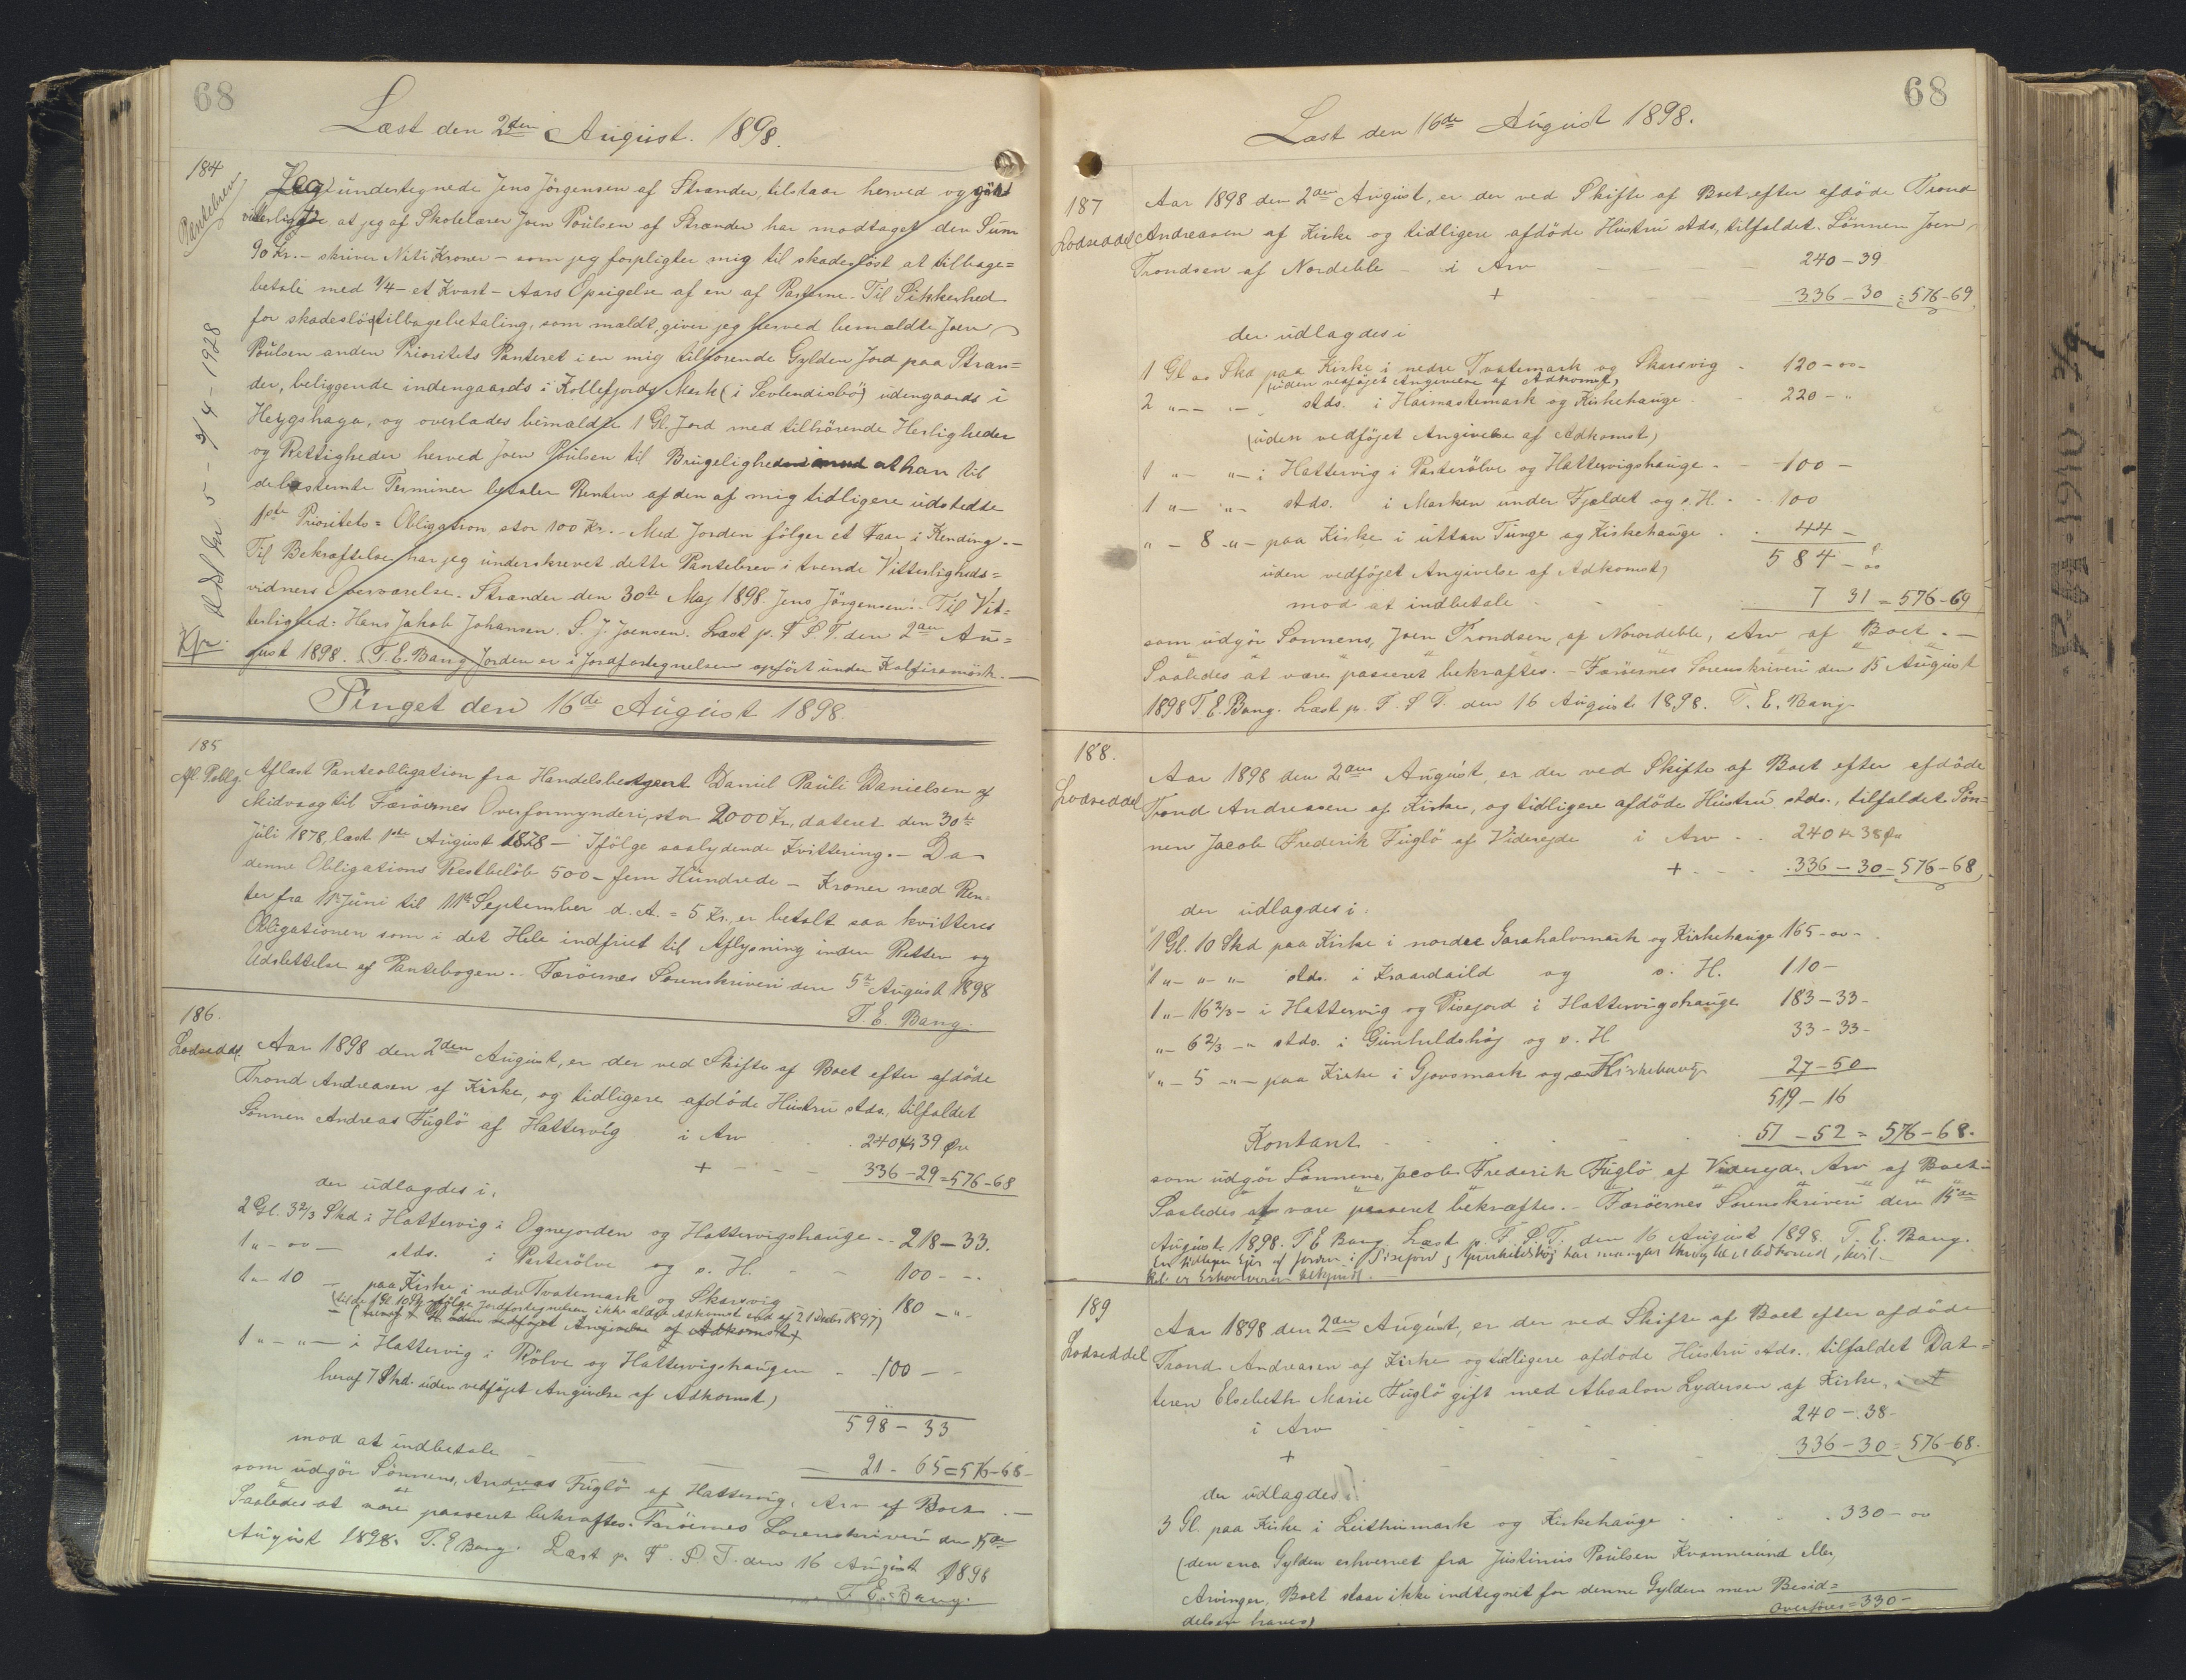 68
Læst den 2den August. 1898.
184
Pantebrev.
Jeg undertegnede Jens Jörgensen af Strænder, tilstaar herved og gör
vitterligt, at jeg af Skolelærer Joen Poulsen af Strænder har modtaget den Sum
90 Kr. - skriver Niti Kroner - som jeg forpligter mig til skadeslöst at tilbage=
betale med 1/4 - et Kvart - Aars Opsigelse af en af Parterne. Til Sikkerhed
for skadeslös tilbagebetaling, som mældt, giver jeg herved bemældte Joen
Poulsen anden Prioritets Panteret i en mig tilhörende Gylden Jord paa Stræn=
der, beliggende indengaards i Kollefjords Mark (i Sevlendisbö) udengaards i
Heygshaga, og overlades bemældte 1 Gl. Jord med tilhörende Herligheder
og Rettigheder herved Joen Poulsen til Brugelighed mod at han til
de bestemte Terminer betaler Renten af den af mig tidligere udstedte
1ste Prioritets= Obligation stor 100 Kr. - Med Jorden fölger et Faar i Kending. -
Til Bekræftelse har jeg underskrevet dette Pantebrev i tvende Vitterligheds=
vidners Overværelse. Strænder den 30te Maj 1898. Jens Jörgensen. - Til Vit=
terlighed: Hans Jakob Johansen. S. J. Joensen. Læst p. F. S. T. den 2den Au=
gust 1898. T. E. Bang Jorden er i Jordfortegnelsen opfört under Kalfiramörk. -
Tinget den 16de August 1898.
185
Af. Poblg.
Aflæst Panteobligation fra Handelsbestyrer Daniel Pauli Danielsen af
Midvaag til Færöernes Overformynderi, stor 2000 Kr, dateret den 30te
Juli 1878, læst 1ste August 1878 - Ifölge saalydende Kvittering. - Da
denne Obligations Restbelöb 500 - fem Hundrede - Kroner med Ren=
ter fra 11te Juni til 11te September d. A. = 5 Kr., er betalt saa kvitteres
Obligationen som i det Hele indfriet til Aflysning inden Retten og
Udslettelse af Pantebogen. Færöernes Sorenskriveri den 5te August 1898
T. E. Bang.
186.
Lodseddl.
Aar 1898 den 2den August, er der ved Skifte af Boet efter afdöde
Trond Andreasen af Kirke, og tidligere afdöde Hustru stds., tilfaldet
Sönnen Andreas Fuglö af Hattervig i Arv 240 Kr 39 Öre
+ 336 - 29 = 576 - 68
der udlagdes i,
2 Gl. 3 2/3 Skd i Hattervig i Ognejorden og Hattervigshauge - 218 - 33.
1 " - oo - stds. i Parterölve og s. H. 100 - -
1 " - 10 - paa Kirke i nedre Tvatemark og Skarsvig 180 - "
1 " - " - i Hattervig i Rölve og Hattervigshaugen - 100 -
heraf 7 Skd. uden vedföjet Angivelse af Adkomst)
598 - 33
mod at indbetale 21 - 65 = 576 - 68 -
som udgör Sönnens, Andreas Fuglö af Hattervig, Arv af Boet. -
Saaledes at være passeret bekræftes. Færöernes Sorenskriveri den 15de
August 1898. T. E Bang. Læst p. F. S. T. den 16 August 1898
T. E. Bang.
68
Læst den 16de August 1898.
187
Lodseddel
Aar 1898 den 2den August, er der ved Skifte af Boet efter afdöde Trond
Andreasen af Kirke og tidligere afdöde Hustru stds, tilfaldet Sönnen Joen
Trondsen af Nordeble - i Arv 240 - 39
+ 336 - 30 = 576 - 69
der udlagdes i
1 Gl oo Skd paa Kirke i nedre Tvatemark og Skarsvig - 120 - oo -
(uden vedföjet Angivelse af Adkomst)
2 " - - " - stds. i Harmastemark og Kirkehauge - 220 - "
(uden vedföjet Angivelse af Adkomst)
1 " - " - i Hattervig i Parterölve og Hattervigshauge - 100 -
1 " - " - stds. i Marken under Fjældet og s. H. - 100
" - 8 - " - paa Kirke i uttan Tunge og Kirkehauge 44 -
uden vedföjet Angivelse af Adkomst) 584 - oo
mod at indbetale 7 31 = 576 - 69
som udgör Sönnens, Joen Trondsen af Norordeble, Arv af Boet. -
Saaledes at være passeret bekræftes. - Færöernes Sorenskriveri den 15 August
1898 T. E. Bang. Læst p. F. S T. den 16 August 1898. T. E. Bang.
188.
Lodseddel
Aar 1898 den 2den August, er der ved Skifte af Boet efter afdöde
Trond Andreasen af Kirke, og tidligere afdöde Hustru stds., tilfaldet Sön=
nen Jacob Frederik Fuglö af Viderejde i Arv - 240 Kr 38 Öre
+ - 336 - 30 = 576 - 68
der udlagdes i:
1 Gl. 10 Skd paa Kirke i nordre Garahalvmark og Kirkehauge 165 - oo -
1 " - " - " - stds. i Kraardaild og s. H. 110 -
1 " - 16 2/3 - i Hattervig og Pisejord i Hattervigshauge 183 - 33 -
" - 6 2/3 - " stds. i Gunhildshöj og s. H 33 - 33 -
" - 5 - " - paa Kirke i Gjovsmark og Kirkehauge 27 - 50
519 - 16
Kontant 57 - 52 = 576 - 68.
som udgör Sönnens, Jacob Frederik Fuglö af Viderejde, Arv af Boet -
Saaledes at være passeret bekræftes. - Færöernes Sorenskriveri den 15de
August 1898. T E Bang Læst p. F. S. T. den 16 August 1898. T. E. Bang.
189
Lodseddel
Aar 1898 den 2den August, er der ved Skifte af Boet efter afdöde
Trond Andreasen af Kirke og tidligere afdöde Hustru stds., tilfaldet Dat=
teren Elsebeth Marie Fuglö gift med Absalon Lydersen af Kirke,
i Arv 240 - 38 -
+ 336 - 30 = 576 - 68.
der udlagdes
3 Gl. paa Kirke i Leithumark og Kirkehauge 330 - oo
(den ene Gylden erhvervet fra Justinus Poulsen Kvannesund eller
Arvinger, Boet staar ikke indtegnet for denne Gylden men Besid=
delsen haves)
Overföres = 330 -